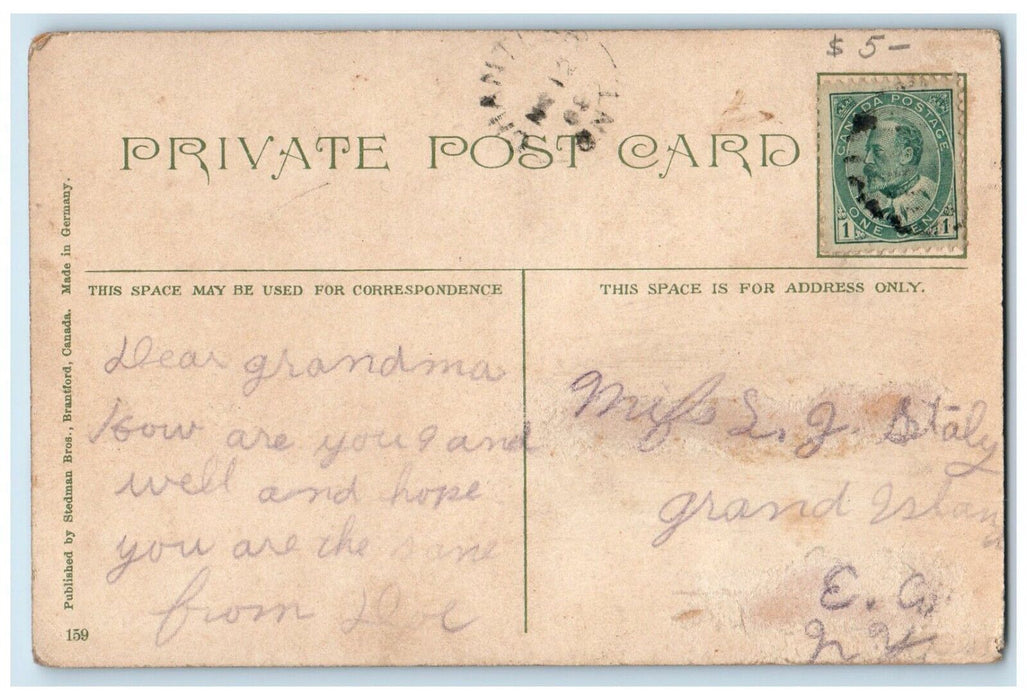 $ 5-
PRIVATE POST CARD
CANADA POSTAGE
1 ONE CENT 1
THIS SPACE MAY BE USED FOR CORRESPONDENCE
THIS SPACE IS FOR ADDRESS ONLY.
Dear grandma
How are you and
well and hope
you are the same
from
Miss L. J. Staly
Grand Island
E. Co.
N. Y.
Published by Stedman Bros., Brantford, Canada. Made in Germany.
159